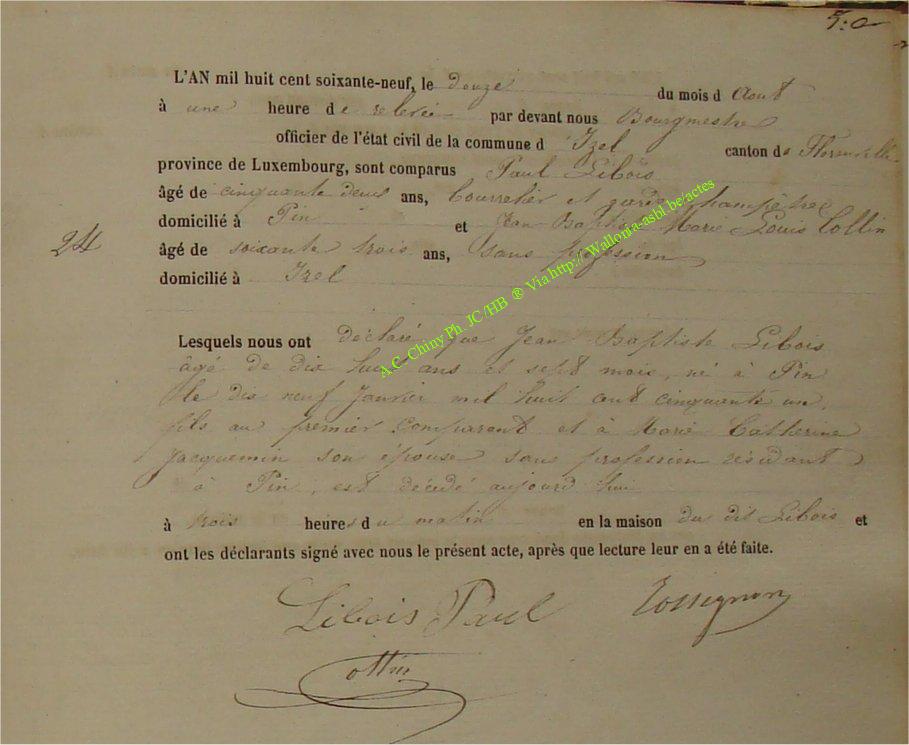 L'AN mil huit cent soixante-neuf, le douze du mois d Aout
à une heure de relevée par devant nous Bourgmestre
officier de l'état civil de la commune d'Izel canton de Florenville
province de Luxembourg, sont comparus Paul Libois
âgé de cinquante deux ans, bourrelier et garde champêtre
domicilié à Pin et Jean Baptiste Marie Louis Collin
24
âgé de soixante trois ans, sans profession
domicilié à Izel
A.C. Chiny Ph. JC/HB ® Via http://Wallonia-asbl.be/actes
Lesquels nous ont déclaré que Jean Baptiste Libois
âgé de dix huit ans et sept mois, né à Pin
le dix neuf Janvier mil huit cent cinquante un,
fils au premier comparant et à Marie Catherine
Jacquemin son épouse sans profession résidant
à Pin, est décédé aujourd hui
à trois heures du matin en la maison du dit Libois et
ont les déclarants signé avec nous le présent acte, après que lecture leur en a été faite.
Libois Paul Rossignon